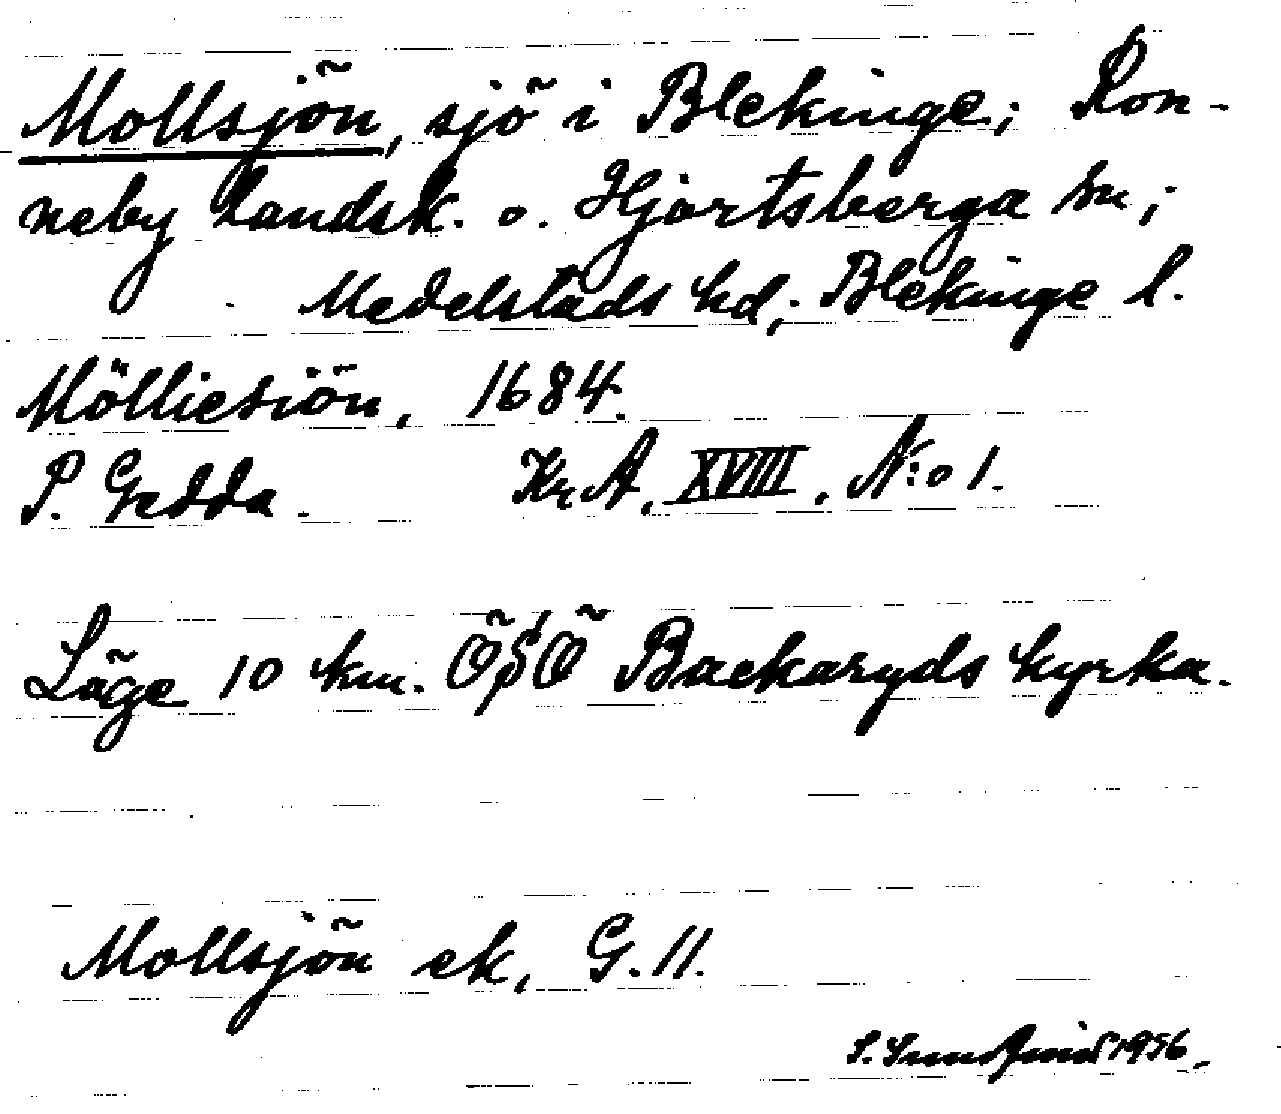 Mollsjön, sjö i Blekinge; Ron-
neby landsk. o. Hjortsberga sn;
Medelstads hd; Blekinge l.
Mölliesiön, 1684.
P. Gedda. Kr. A, XVIII, N:o 1.
Läge 10 km. ÖSÖ Backaryds kyrka.
Mollsjön ek, G. 11.
1956